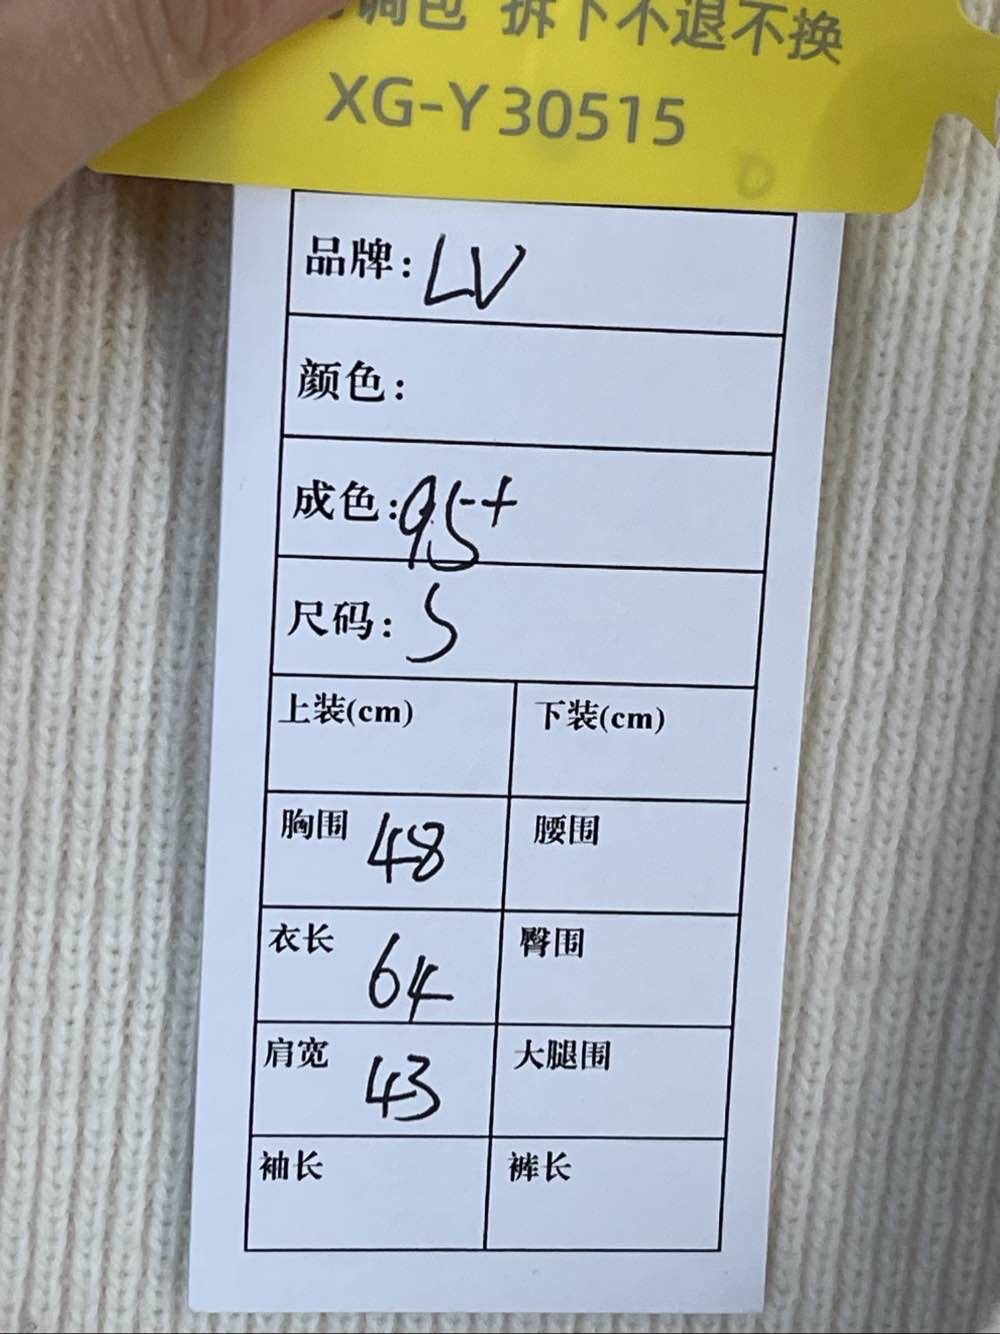 调包 拆下不退不换
XG-Y30515
品牌: LV
颜色:
成色: 95+
尺码: S
上装(cm) 下装(cm)
胸围 48 腰围
衣长 64 臀围
肩宽 43 大腿围
袖长 裤长